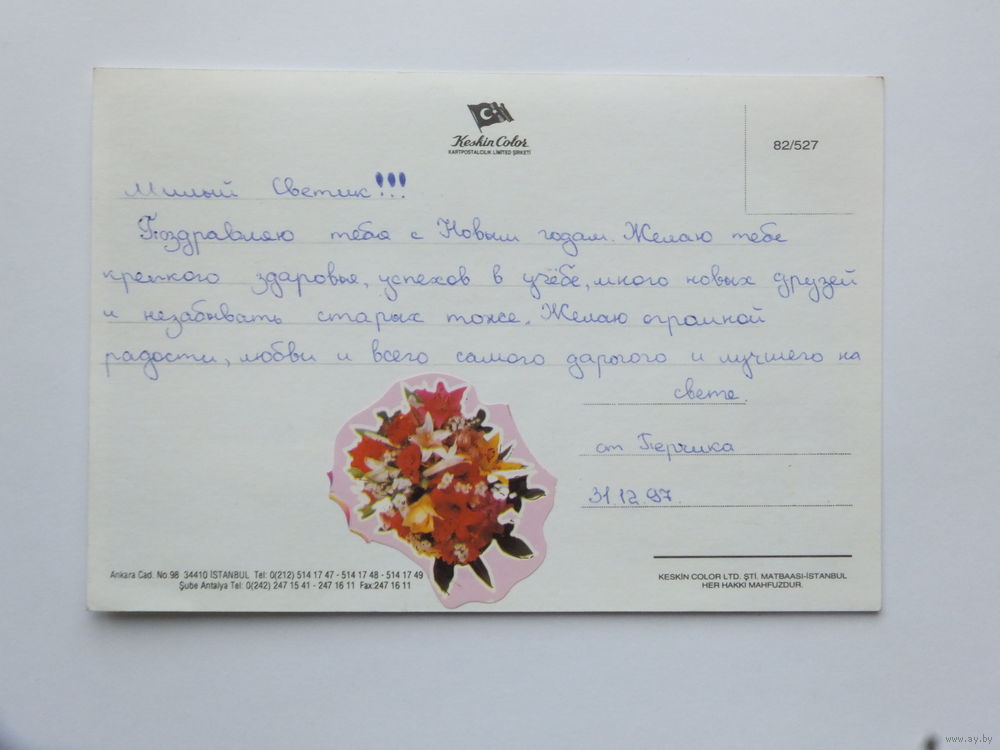 Keskin Color
KARTPOSTALCILIK LIMITED ŞİRKETİ
82/527
Милый Светик!!!
Поздравляю тебя с Новым годам. Желаю тебе
крепкого здаровья, успехов в учёбе, много новых друзей
и незабывать старых тоже. Желаю огромной
радости, любви и всего самого дарогого и лучшего на
свете.
от Перчика
31.12.97.
Ankara Cad. No:98 34410 İSTANBUL Tel: 0(212) 514 17 47 - 514 17 48 - 514 17 49
Şube Antalya Tel: 0(242) 247 15 41 - 247 16 11 Fax:247 16 11
KESKİN COLOR LTD. ŞTİ. MATBAASI-İSTANBUL
HER HAKKI MAHFUZDUR.
www.ay.by